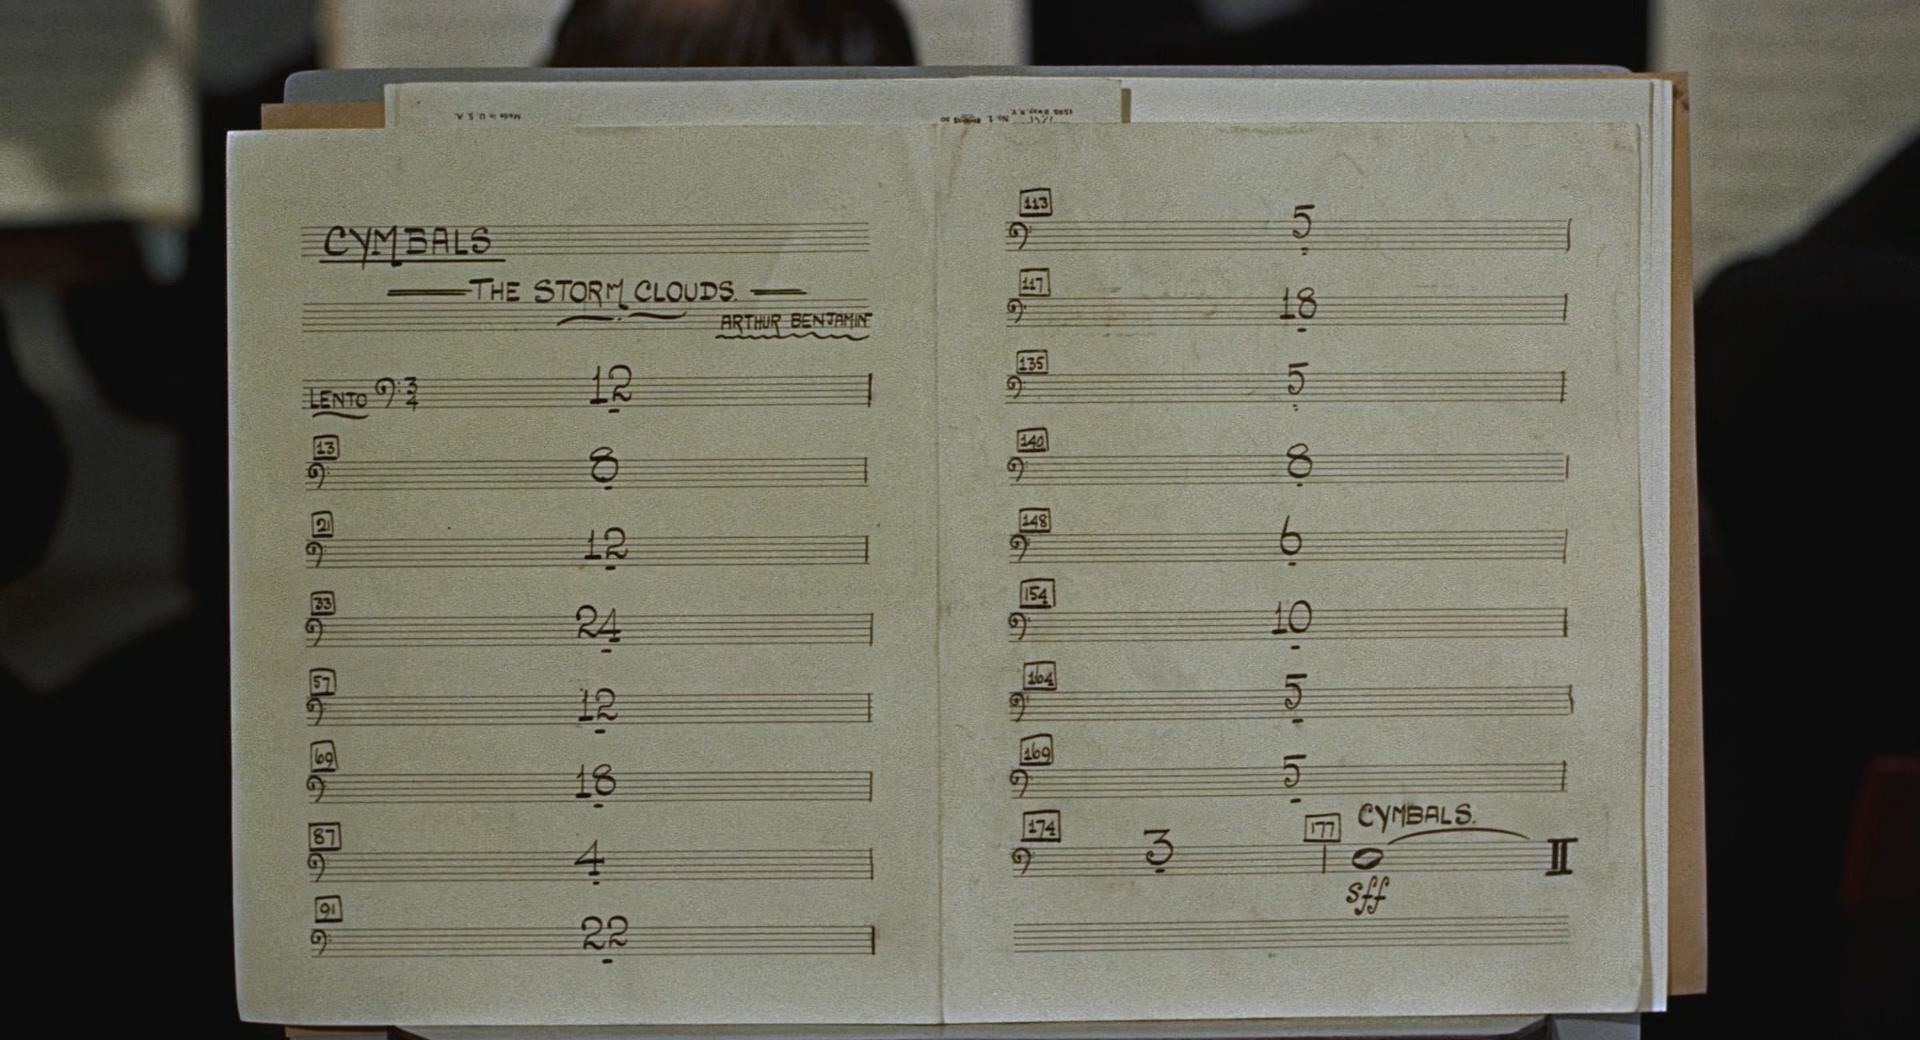 Made in U. S. A.
CYMBALS
THE STORM CLOUDS.
ARTHUR BENJAMIN
LENTO 3/4 12
13
8
21
12
33
24
57
12
69
18
87
4
91
22
113
5
117
18
135
5
140
8
148
6
154
10
164
5
169
5
174
3
177 CYMBALS.
sff